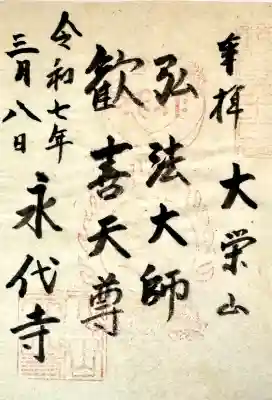 奉拝
大栄山
弘法大師
歓喜天尊
永代寺
令和七年
三月八日